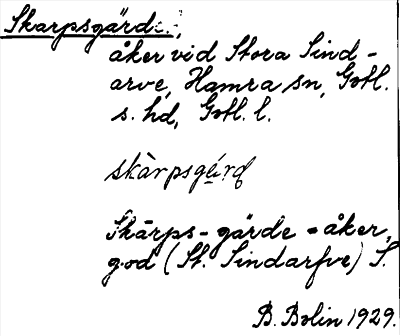 Skarpsgärde,
åker vid Stora Sind-
arve, Hamra sn, Gotl.
s. hd, Gotl. l.
skàrpsgárd
Skärps-gärde = åker,
god (St. Sindarfve) S.
B. Bolin 1929.